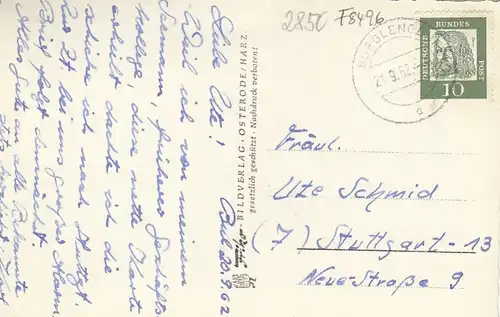 2850 F8496
21.9.62
DEUTSCHE BUNDES POST
10
Liebe Ute!
20.9.62
Weil ich von meinem
Seemann, früheres Geschäfts
kollege, diese nette Karte
erhielt, dachte ich die
schicke ich nach Stuttgt.
Zur Zt. bei uns großes Alarm,
Brief folgt demnächst.
Alles Gute an alle Bekannte
BILDVERLAG · OSTERODE/HARZ
gesetzlich geschützt · Nachdruck verboten!
Fräul.
Ute Schmid
(7) Stuttgart-13
Neue-Straße 9